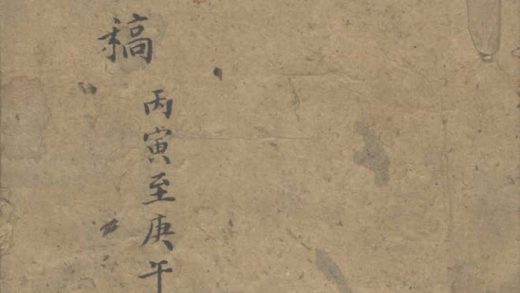 稿
丙寅至庚午